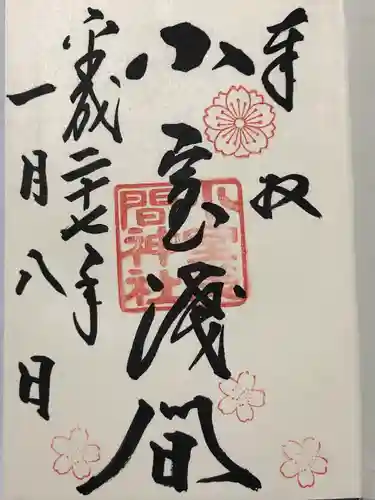 奉拝
小室浅間
小室浅間神社
平成二十七年
一月八日